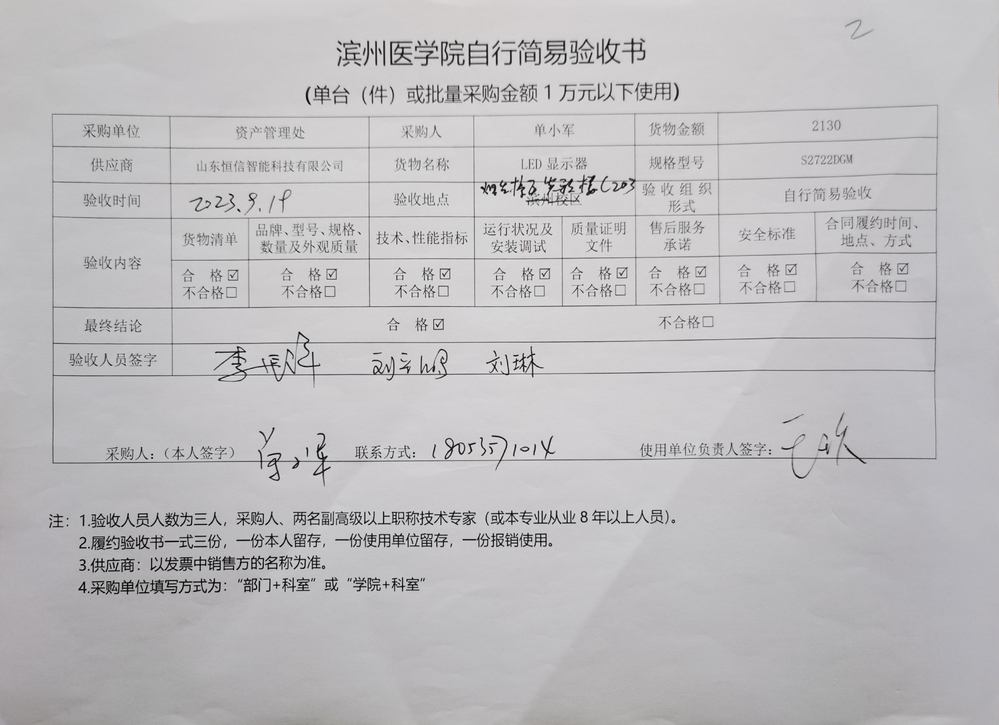 2
滨州医学院自行简易验收书
(单台（件）或批量采购金额1万元以下使用)
采购单位 资产管理处 采购人 单小军 货物金额 2130
供应商 山东恒信智能科技有限公司 货物名称 LED 显示器 规格型号 S2722DGM
验收时间 2023.9.19 验收地点 滨州校区 C203 验收组织形式 自行简易验收
验收内容 货物清单 品牌、型号、规格、数量及外观质量 技术、性能指标 运行状况及安装调试 质量证明文件 售后服务承诺 安全标准 合同履约时间、地点、方式
合 格☑ 合 格☑ 合 格☑ 合 格☑ 合 格☑ 合 格☑ 合 格☑ 合 格☑
不合格□ 不合格□ 不合格□ 不合格□ 不合格□ 不合格□ 不合格□ 不合格□
最终结论 合 格☑ 不合格□
验收人员签字 刘琳
采购人：(本人签字) 单小军 联系方式： 18053571014 使用单位负责人签字：
注：1.验收人员人数为三人，采购人、两名副高级以上职称技术专家（或本专业从业8年以上人员）。
2.履约验收书一式三份，一份本人留存，一份使用单位留存，一份报销使用。
3.供应商：以发票中销售方的名称为准。
4.采购单位填写方式为："部门+科室"或"学院+科室"